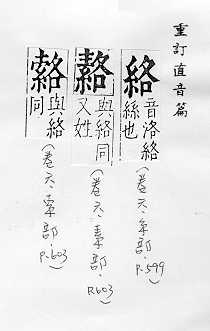 重訂直音篇
絡
音洛絡
絲也
(卷六·糸部·P.599)
與絡同
又姓
(卷六·素部·P.603)
與絡
同
(卷六· 部·P.603)